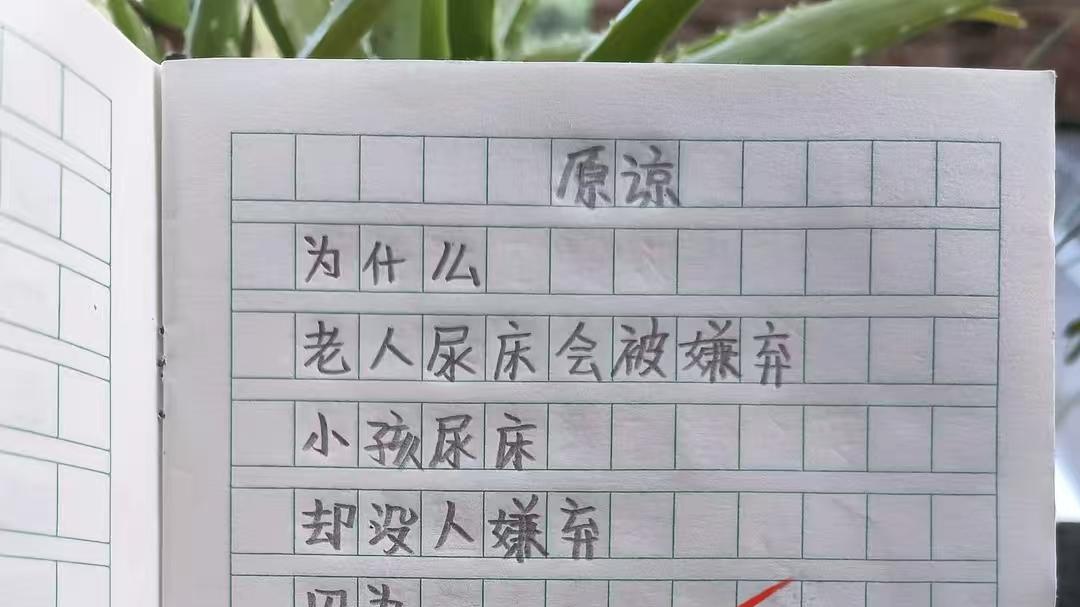 原谅
为什么
老人尿床会被嫌弃
小孩尿床
却没人嫌弃
因为